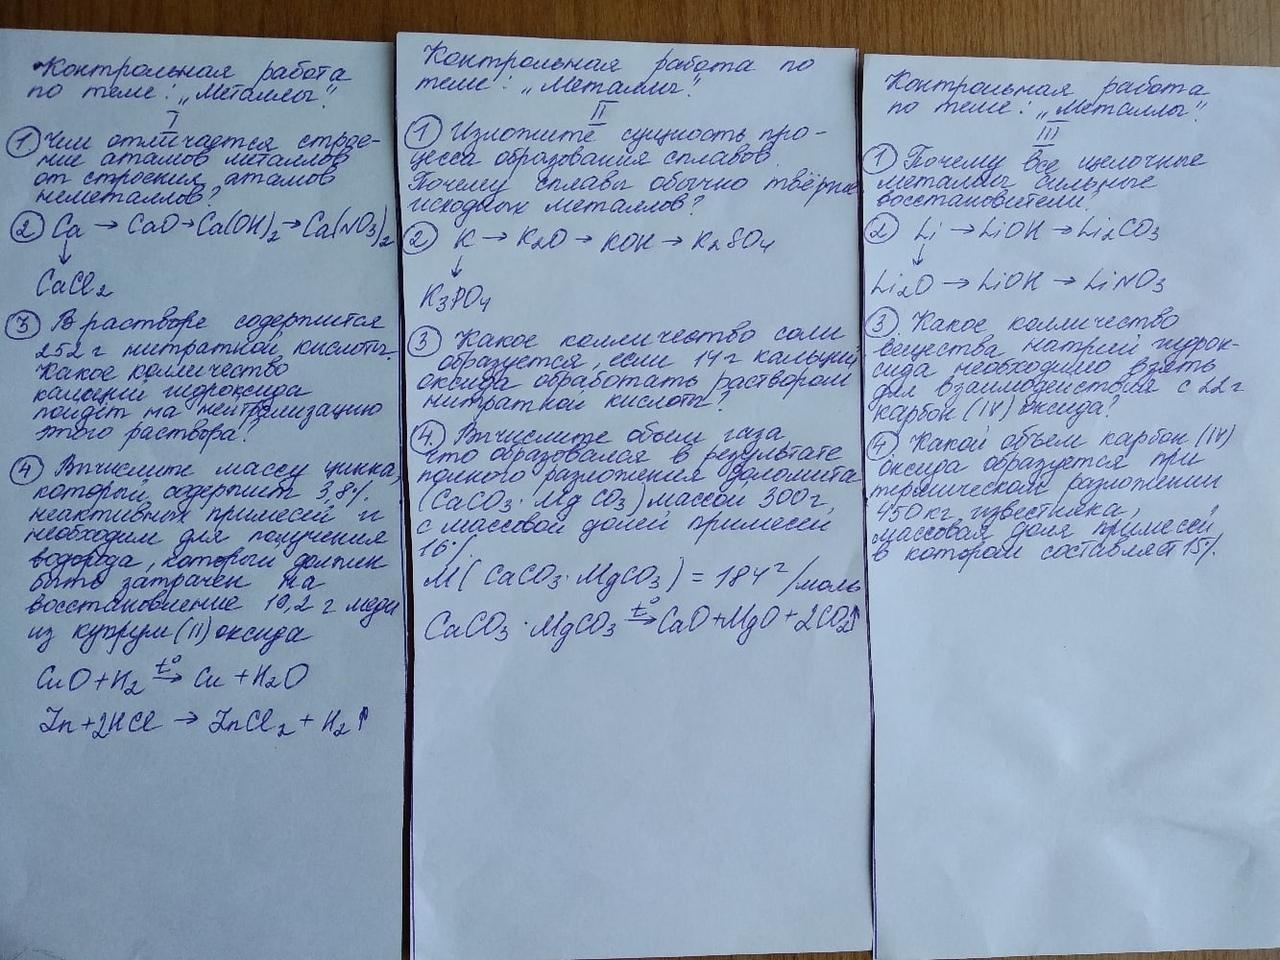 Контрольная работа
по теме: „Металлы".
I
① Чем отличается строе-
ние атамов металлов
от строения атамов
неметаллов?
② Ca → CaO → Ca(OH)₂ → Ca(NO₃)₂
↓
CaCl₂
③ В растворе содержится
252 г нитратной кислоты.
Какое количество
кальций гидроксида
пойдёт на нейтрализацию
этого раствора?
④ Вычислите массу цинка,
который содержит 3,8%
неактивных примесей и
необходим для получения
водорода, который должен
быть затрачен на
восстановление 19,2 г меди
из купрум (II) оксида
CuO + H₂ t°→ Cu + H₂O
Zn + 2HCl → ZnCl₂ + H₂↑
Контрольная работа по
теме: „Металлы".
II
① Изложите сущность про-
цесса образования сплавов.
Почему сплавы обычно твёрже
исходных металлов?
② K → K₂O → KOH → K₂SO₄
↓
K₃PO₄
③ Какое колличество соли
образуется, если 14 г кальций
оксида обработать раствором
нитратной кислоты?
④. Вычислите объем газа
что образовался в результате
полного разложения доломита
(CaCO₃ · MgCO₃) массой 300 г,
с массовой долей примесей
16%.
M(CaCO₃ · MgCO₃) = 184 г/моль
CaCO₃ · MgCO₃ t°→ CaO + MgO + 2CO₂↑
Контрольная работа
по теме: „Металлы".
III
① Почему все щелочные
металлы сильные
восстановители?
② Li → LiOH → Li₂CO₃
↓
Li₂O → LiOH → LiNO₃
③. Какое колличество
вещества натрий гидрок-
сида необходимо взять
для взаимодействия с 22 г
карбон (IV) оксида?
④. Какой объем карбон (IV)
оксида образуется при
термическом разложении
450 кг известняка,
массовая доля примесей,
в котором составляет 15%.